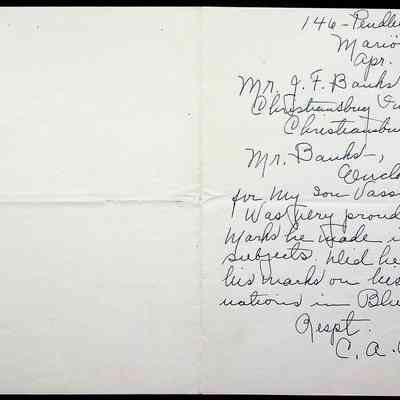 146 - Pendle
Marion
Apr.
Mr. J. F. Banks
Christiansburg
Christiansbu
Mr. Banks-,
Enclo
for my son Vass
Was very proud
Marks he made i
subjects. Did he
his marks on his
nations in Blu
Respt.
C. A.